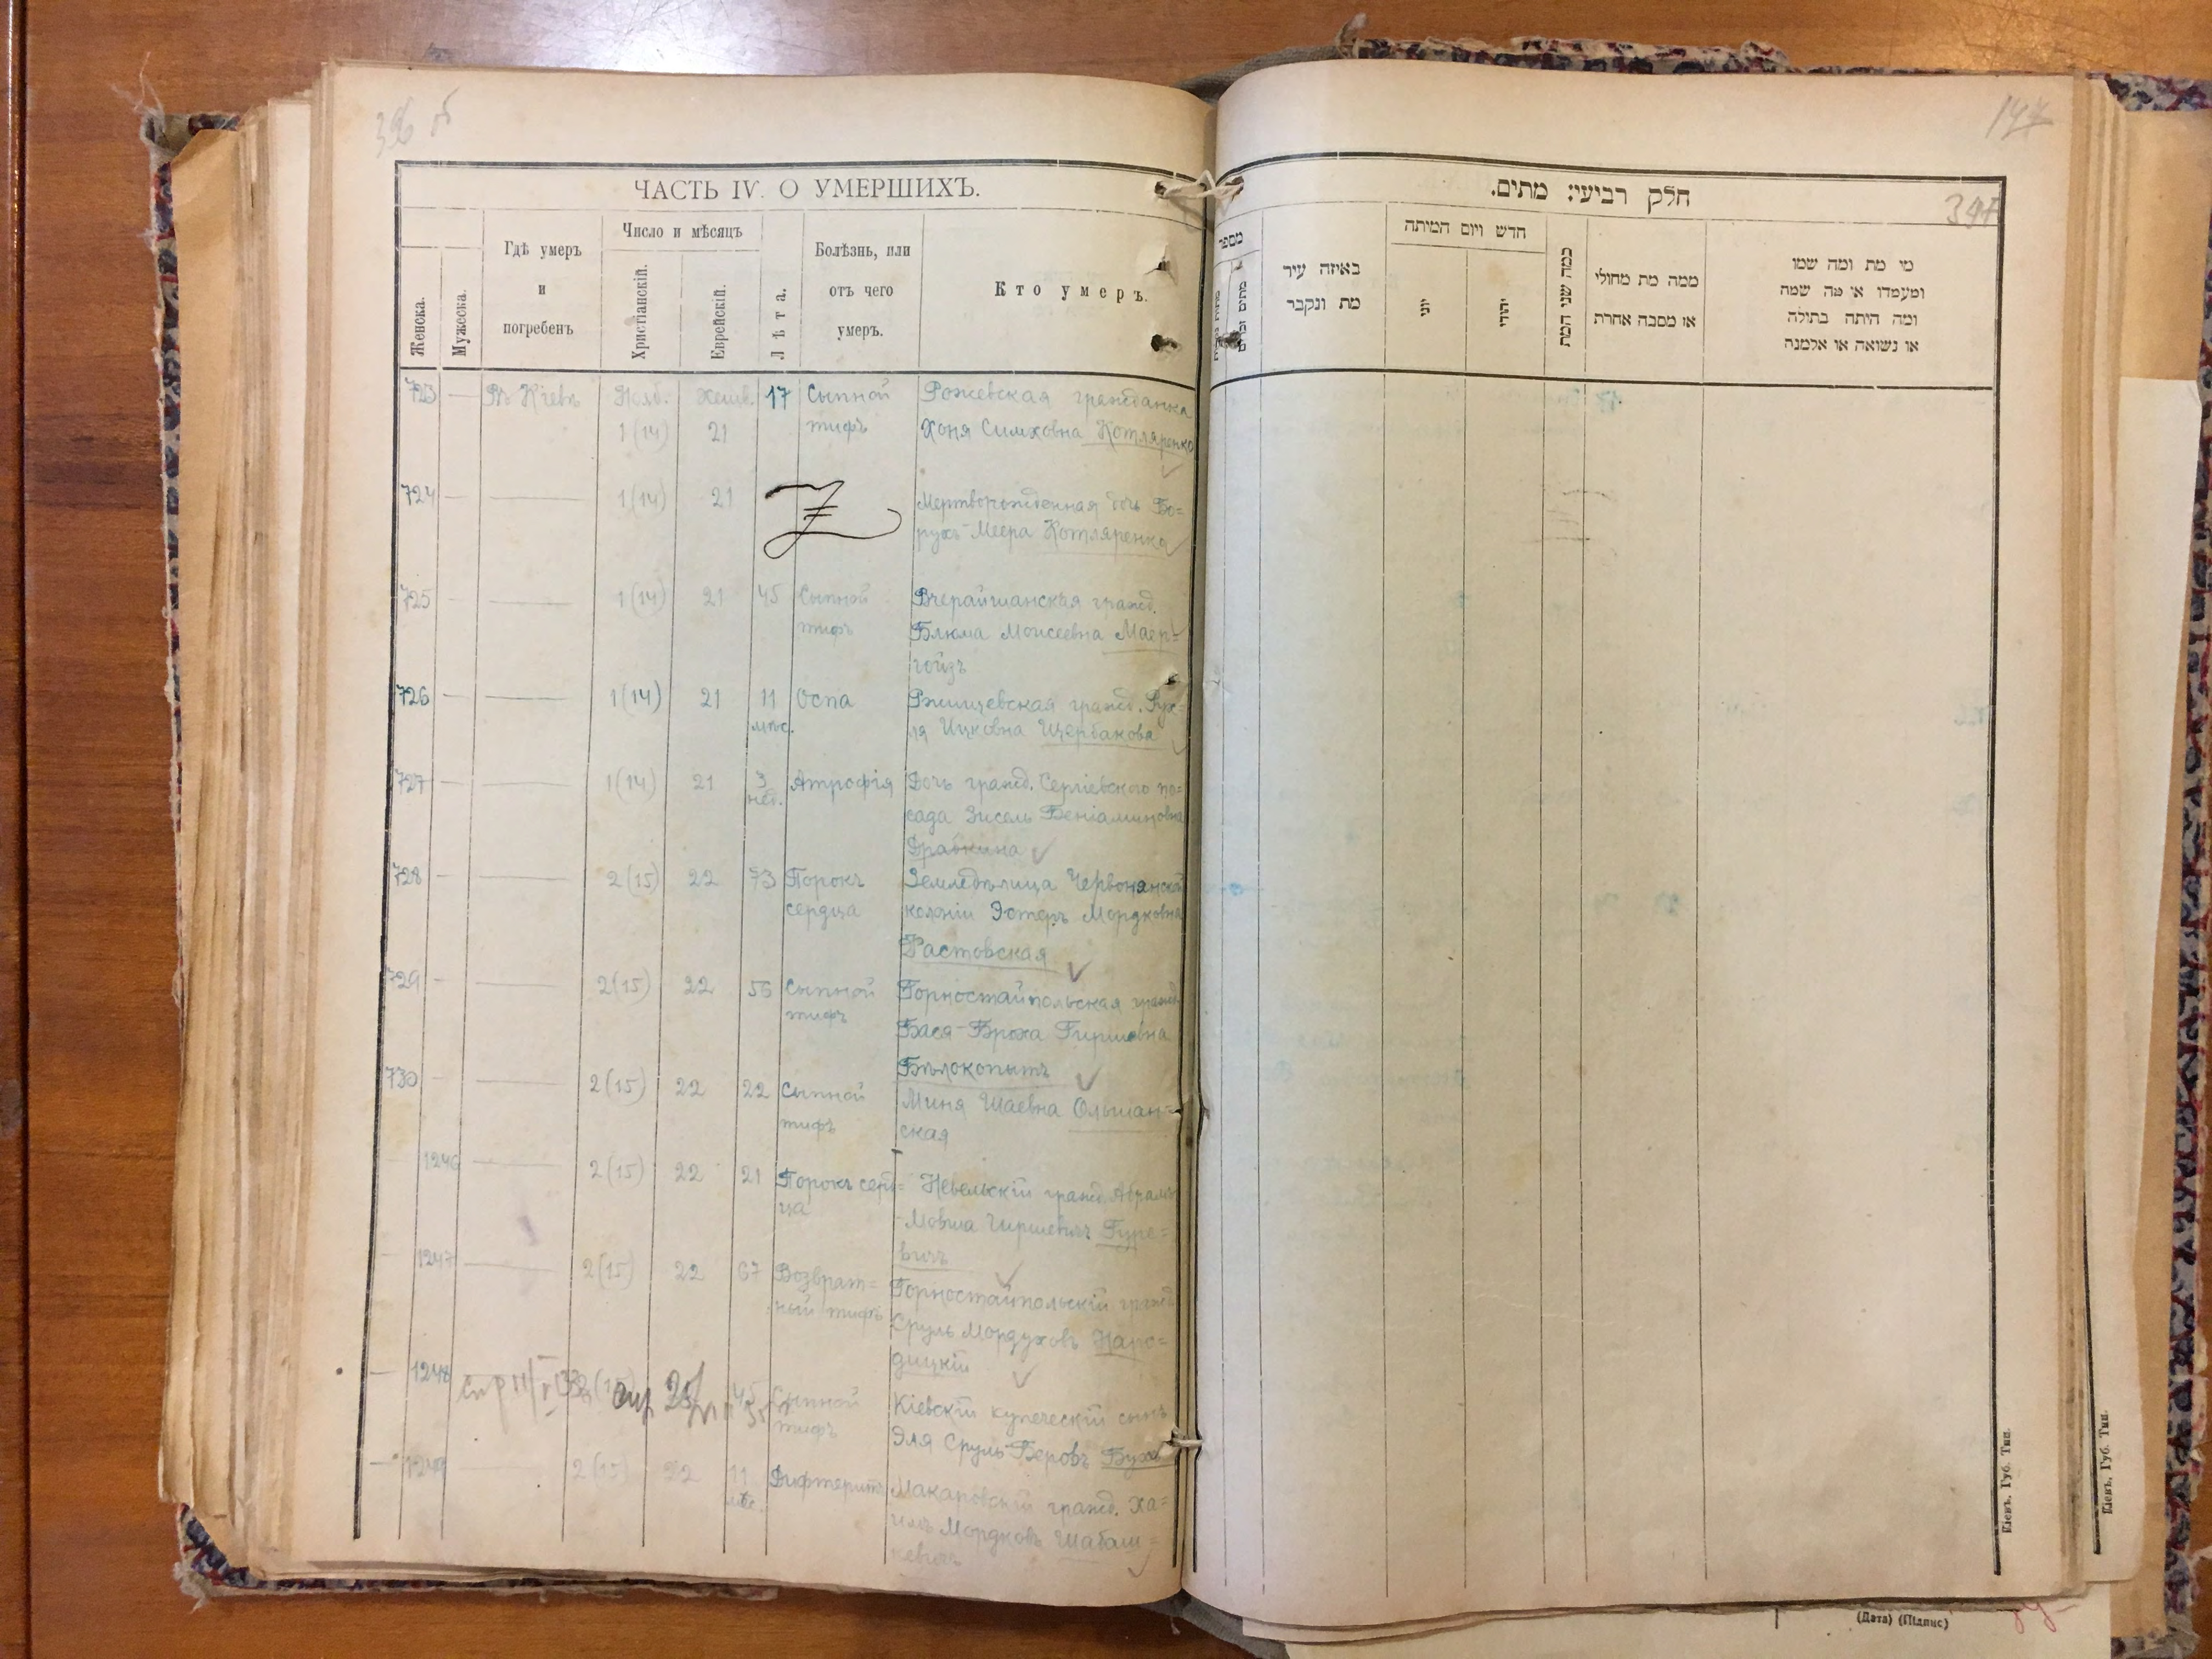 ЧАСТЬ IV. О УМЕРШИХЪ.
Женска.
Мужеска.
Гдѣ умеръ
и
погребенъ
Число и мѣсяцъ
Христіанскій.
Еврейскій.
Лѣта.
Болѣзнь, или
отъ чего
умеръ.
Кто умеръ.
723 — Въ Кіевѣ Нояб. Хешв. 17 Сыпной Рожевская гражданка
1(14) 21 тифъ Хоня Симховна Котляренко
724 — — 1(14) 21 Мертворожденная дочь Бо=
рухъ-Меера Котляренка
725 — — 1(14) 21 45 Сыпной Вчерайшанская гражд.
тифъ Блюма Моисеевна Маер=
гойзъ
726 — — 1(14) 21 11 Оспа Ржищевская гражд. Рух=
мѣс. ля Ицковна Щербакова
727 — — 1(14) 21 3 Атрофія Дочь гражд. Сергіевского по=
нед. сада Зисель Беніаминовна
Драбкина
728 — — 2(15) 22 73 Порокъ Земледѣлица Червонянской
сердца колоніи Эстеръ Мордковна
Фастовская
729 — — 2(15) 22 56 Сыпной Горностайпольская гражд.
тифъ Бася-Броха Гершовна
Бѣлокопытъ
730 — — 2(15) 22 22 Сыпной Миня Шаевна Ольшан=
тифъ ская
1246 — 2(15) 22 21 Порокъ серд= Невельскій гражд. Абрамъ
ца -Мовша Гиршевичъ Гуре=
вичъ
1247 — 2(15) 22 67 Возврат= Горностайпольскій гражд.
ный тифъ Сруль Мордуховъ Наро=
дицкій
— 1248 45 Сыпной Кіевскій купеческій сынъ
тифъ Эля Сруль-Беровъ Бухъ
— 1249 — 2(15) 22 11 Дифтеритъ Макаровскій гражд. Ха=
мѣс. имъ Мордковъ Шабаш=
кевичъ
147
347
חלק רביעי: מתים.
מספר
באיזה עיר
מת ונקבר
חדש ויום המיתה
יוני
יהודי
כמה שני המת
ממה מת מחולי
או מסבה אחרת
מי מת ומה שמו
ומעמדו או מה שמה
ומה היתה בתולה
או נשואה או אלמנה
Кіевъ, Губ. Тип.
Кіевъ, Губ. Тип.
(Дата) (Підпис)